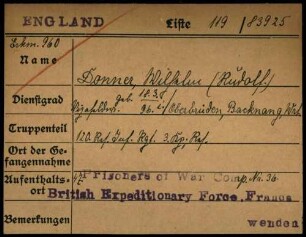 ENGLAND Liste 119 / 83925
Erkm. 960
Name Donner, Wilhelm (Rudolf)
Dienstgrad geb. 18.3.
Oberbrüden, Backnang Wrtt.
Truppenteil 120. Res. Inf. Rgt. 3. Kp. Res.
Ort der Gefangennahme
Aufenthaltsort Prisoners of War Comp. No. 30
British Expeditionary Force, France
Bemerkungen wenden